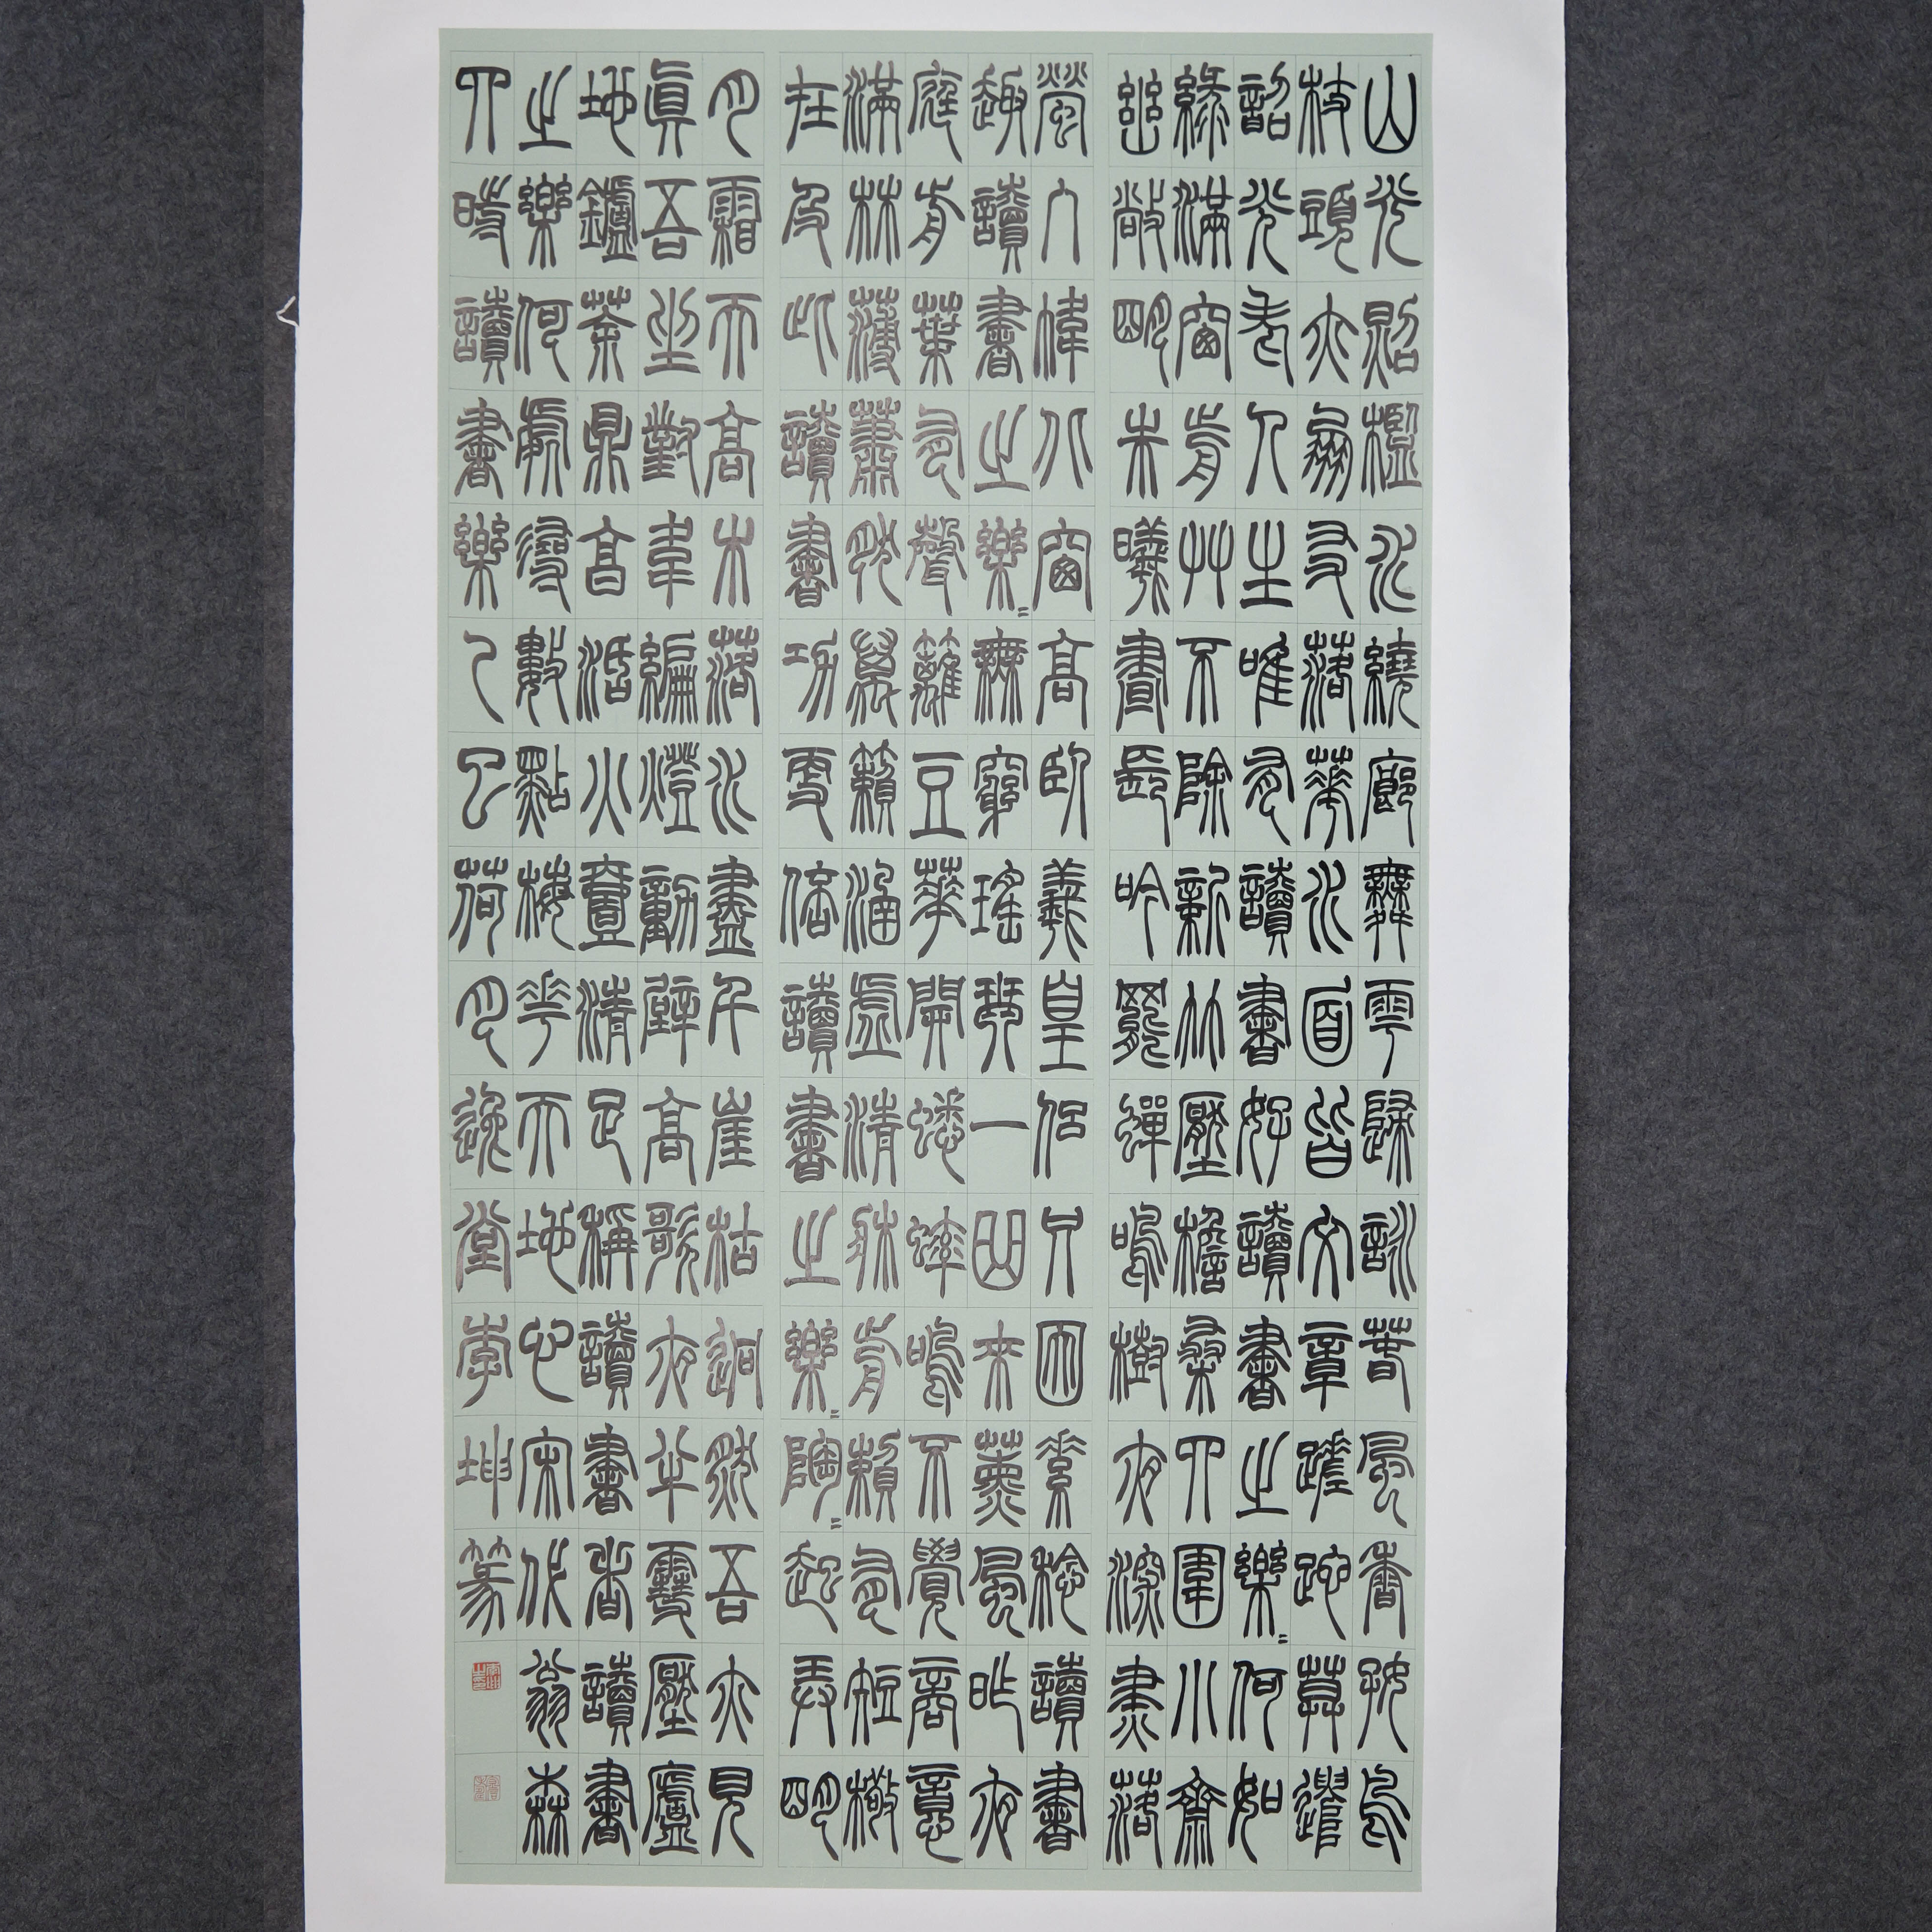 山光照檻水繞廊舞雩歸詠春風香好鳥
枝頭亦朋友落花水面皆文章蹉跎莫遣
韶光老人生唯有讀書好讀書之樂〻何如
綠滿窗前艸不除新竹壓檐桑四圍小齋
幽敞明朱曦晝長吟罷蟬鳴樹夜深燼落
螢入幃北窗高臥羲皇侶只因素稔讀書
趣讀書之樂〻無窮瑤琴一曲來薰風昨夜
庭前葉有聲籬豆花開蟋蟀鳴不覺商意
滿林薄蕭然萬籟涵虛清牀前賴有短檠
在及此讀書功更倍讀書之樂〻陶〻起弄明
月霜天高木落水盡千崖枯迥然吾亦見
真吾坐對韋編燈動壁高歌夜半雪壓廬
地鑪茶鼎烹活火壹清足稱讀書者讀書
之樂何處尋數點梅花天地心宋代翁森
四時讀書樂乙巳荷月逸堂李坤篆